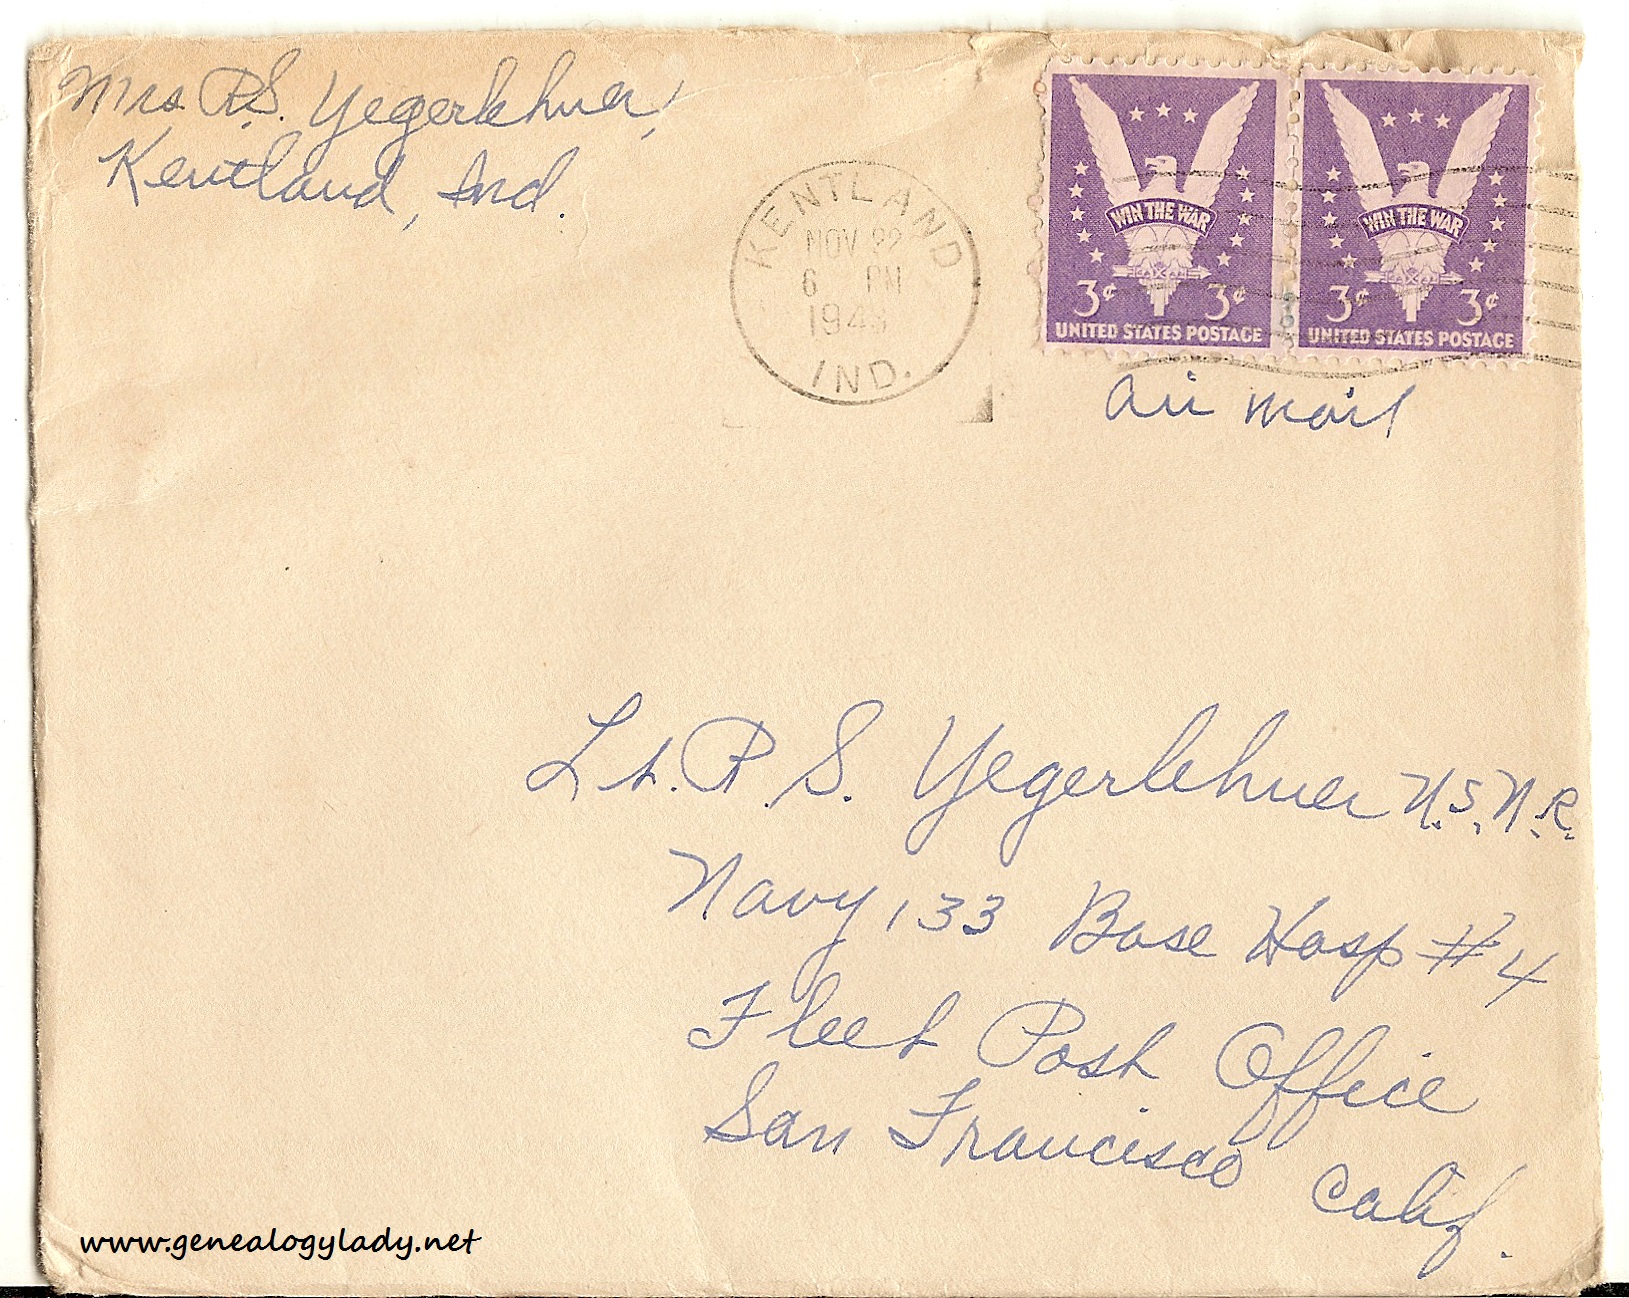 Mrs R.S. Yegerlehner,
Kentland, Ind.
KENTLAND
NOV 22
6 PM
1943
IND.
WIN THE WAR
3¢ 3¢
UNITED STATES POSTAGE
WIN THE WAR
3¢ 3¢
UNITED STATES POSTAGE
air mail
Lt. R.S. Yegerlehner U.S.N.R.
Navy 133 Base Hosp #4
Fleet Post Office
San Francisco Calif.
www.genealogylady.net